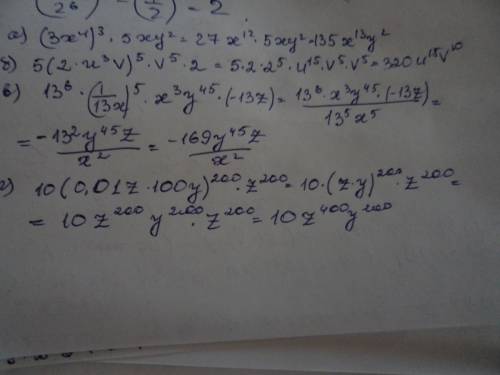 (2⁶) – (1/2) = 2
а) (3x⁴)³ · 5xy² = 27x¹² · 5xy² = 135x¹³y²
б) 5(2·u³v)⁵ · v⁵ · 2 = 5·2·2⁵·u¹⁵·v⁵·v⁵ = 320u¹⁵v¹⁰
в) 13⁶ · (1/13x)⁵ · x³y⁴⁵ · (-13z) = 13⁶·x³y⁴⁵·(-13z)/13⁵x⁵ =
= -13²y⁴⁵z/x² = -169y⁴⁵z/x²
г) 10(0,01z·100y)²⁰⁰ · z²⁰⁰ = 10·(z·y)²⁰⁰ · z²⁰⁰ =
= 10z²⁰⁰y²⁰⁰ · z²⁰⁰ = 10z⁴⁰⁰y²⁰⁰